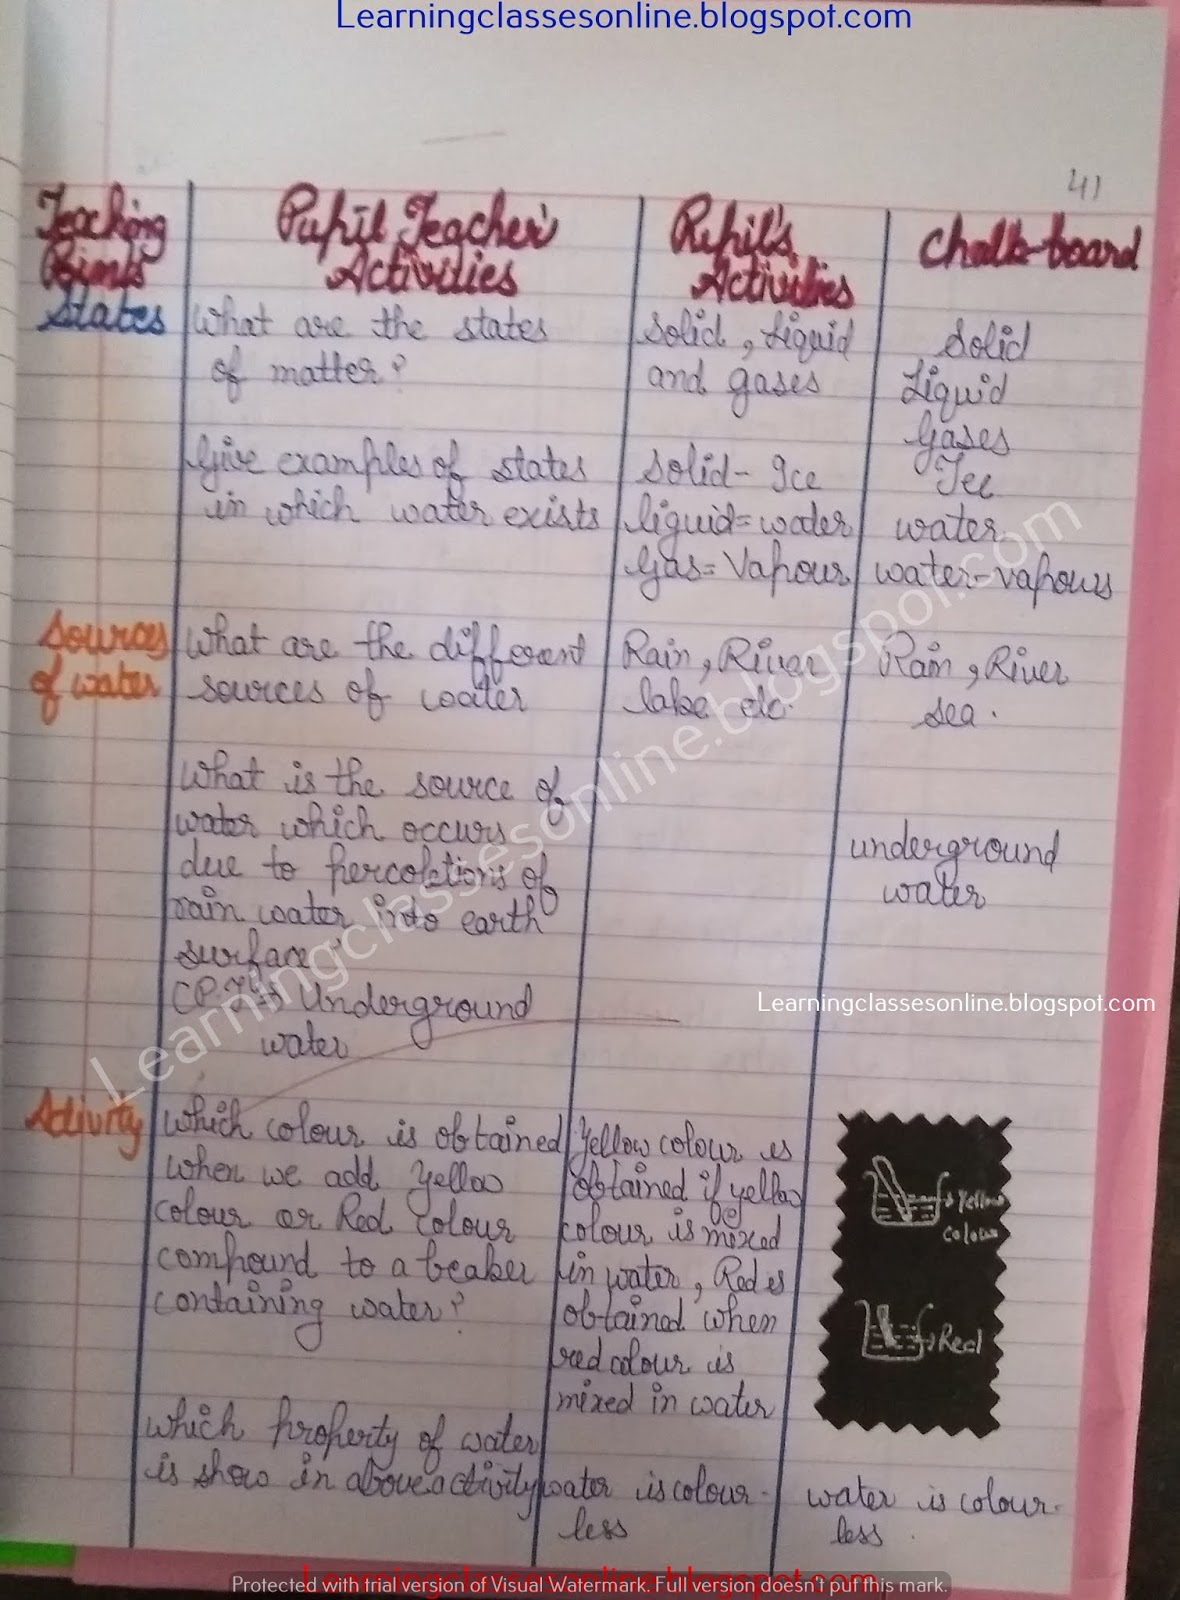 Learningclassesonline.blogspot.com
41
Teaching
Points
Pupil Teacher's
Activities
Pupil's
Activities
Chalk-board
States
What are the states
of matter?
Solid, Liquid
and gases
Solid
Liquid
Gases
Give examples of states
in which water exists
Solid - Ice
liquid = water
Gas = Vapour
Ice
water
water-vapours
Sources
of water
What are the different
sources of water
Rain, River
lake etc.
Rain, River
sea.
What is the source of
water which occurs
due to percolations of
rain water into earth
surface
underground
water
Underground
water
Learningclassesonline.blogspot.com
Learningclassesonline.blogspot.com
Activity
Which colour is obtained
when we add Yellow
colour or Red colour
compound to a beaker
containing water?
Yellow colour is
obtained if yellow
colour is mixed
in water, Red is
obtained when
red colour is
mixed in water
Yellow
colour
Red
which property of water
is show in above activity
water is colour-
less
water is colour-
less.
Learningclassesonline.blogspot.com
Protected with trial version of Visual Watermark. Full version doesn't put this mark.